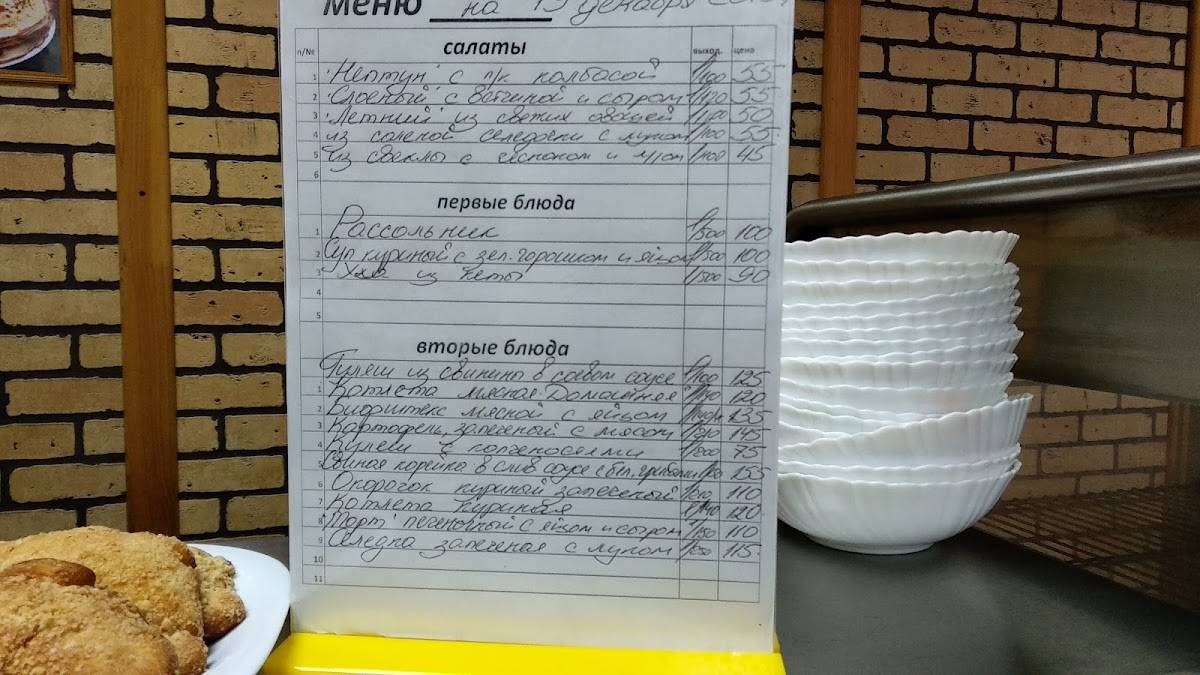 Меню на 19 декабря
салаты
п/№ выход. цена
1 "Нептун" с п/к колбасой 1/100 55
2 "Слоеный" с ветчиной и сыром 1/120 55
3 "Летний" из свежих овощей 1/100 50
4 из соленой селедки с луком 1/100 55
5 Из свеклы с чесноком и 1/100 45
6
первые блюда
1 Рассольник 1/500 100
2 Суп куриный с зел. горошком и яйцом 1/500 100
3 Уха из кеты 1/500 90
4
5
вторые блюда
Гуляш из свинины в соевом соусе 1/100 125
1 Котлета мясная Домашняя 120
2 Бифштекс мясной с яйцом 135
3 Картофель, запеченый с мясом 145
4 Кулеш с копченостями 75
5 Свиная корейка в слив соусе с бел. грибами 155
6 Окорочок куриный запеченый 110
7 Котлета куриная 1/140 120
8 "Торт" печеночный с яйцом и сыром 1/150 110
9 Селедка запеченая с луком 115
10
11